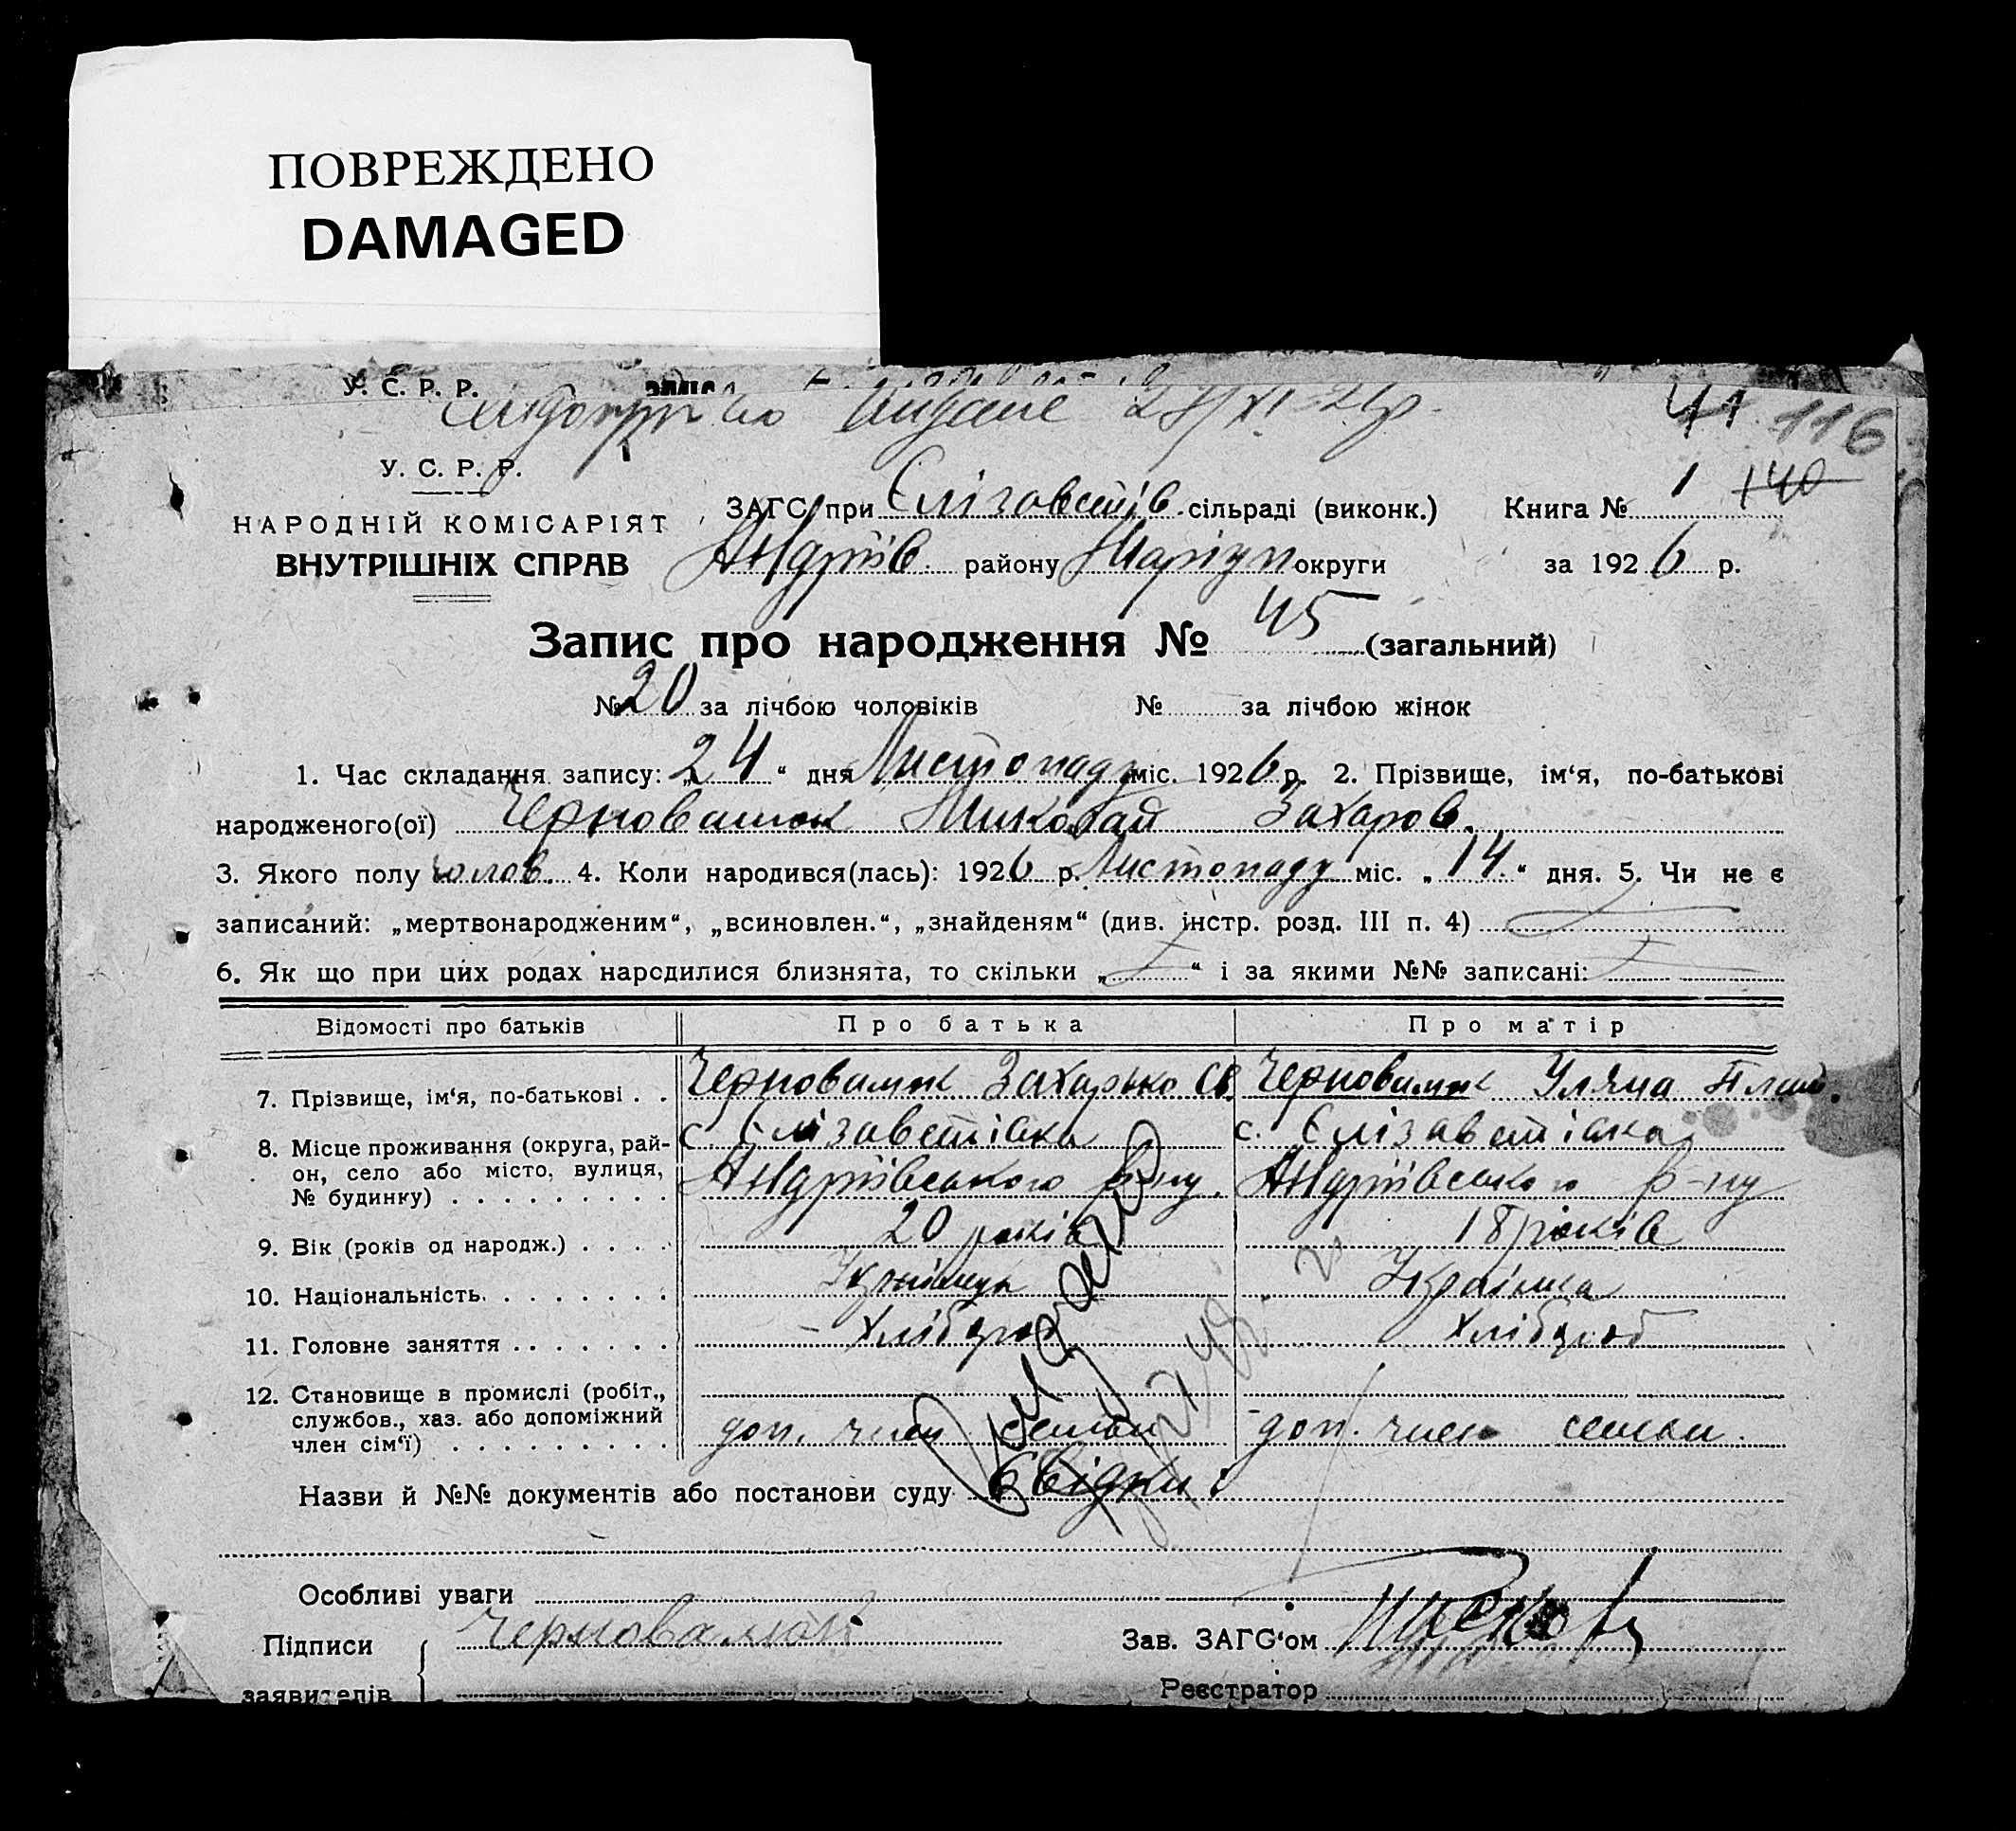 ПОВРЕЖДЕНО
DAMAGED
У. С. Р. Р.
41 116
У. С. Р. Р.
НАРОДНІЙ КОМІСАРІЯТ
ВНУТРІШНІХ СПРАВ
ЗАГС при Єлізаветів. сільраді (виконк.) Книга № 1 140
Андріїв. району Маріуп округи за 1926 р.
Запис про народження № 45 (загальний)
№ 20 за лічбою чоловіків № за лічбою жінок
1. Час складання запису: „24“ дня Листопаду міс. 1926 р. 2. Прізвище, ім‘я, по-батькові
народженого(ої) Миколай Захаров.
3. Якого полу чолов. 4. Коли народився(лась): 1926 р. Листопаду міс. „14.“ дня. 5. Чи не є
записаний: „мертвонародженим“, „всиновлен.“, „знайденям“ (див. інстр. розд. III п. 4)
6. Як що при цих родах народилися близнята, то скільки „ “ і за якими №№ записані:
Відомості про батьків Про батька Про матір
7. Прізвище, ім‘я, по-батькові . . Захарько Уляна
8. Місце проживання (округа, рай- с. Єлізаветівка с. Єлізаветівка
он, село або місто, вулиця, Андріївського р-ну. Андріївського р-ну
№ будинку) . . . . . . . . .
9. Вік (років од народж.) . . . . 20 років 18 років
10. Національність. . . . . . . . Українець Українка
11. Головне заняття . . . . . . . Хлібороб Хлібороб
12. Становище в промислі (робіт.,
службов., хаз. або допоміжний доп. член семьи доп. член семьи.
член сім‘ї) . . . . . . . . .
Назви й №№ документів або постанови суду свідки:
Особливі уваги
Підписи Зав. ЗАГС‘ом
заявителів Реєстратор